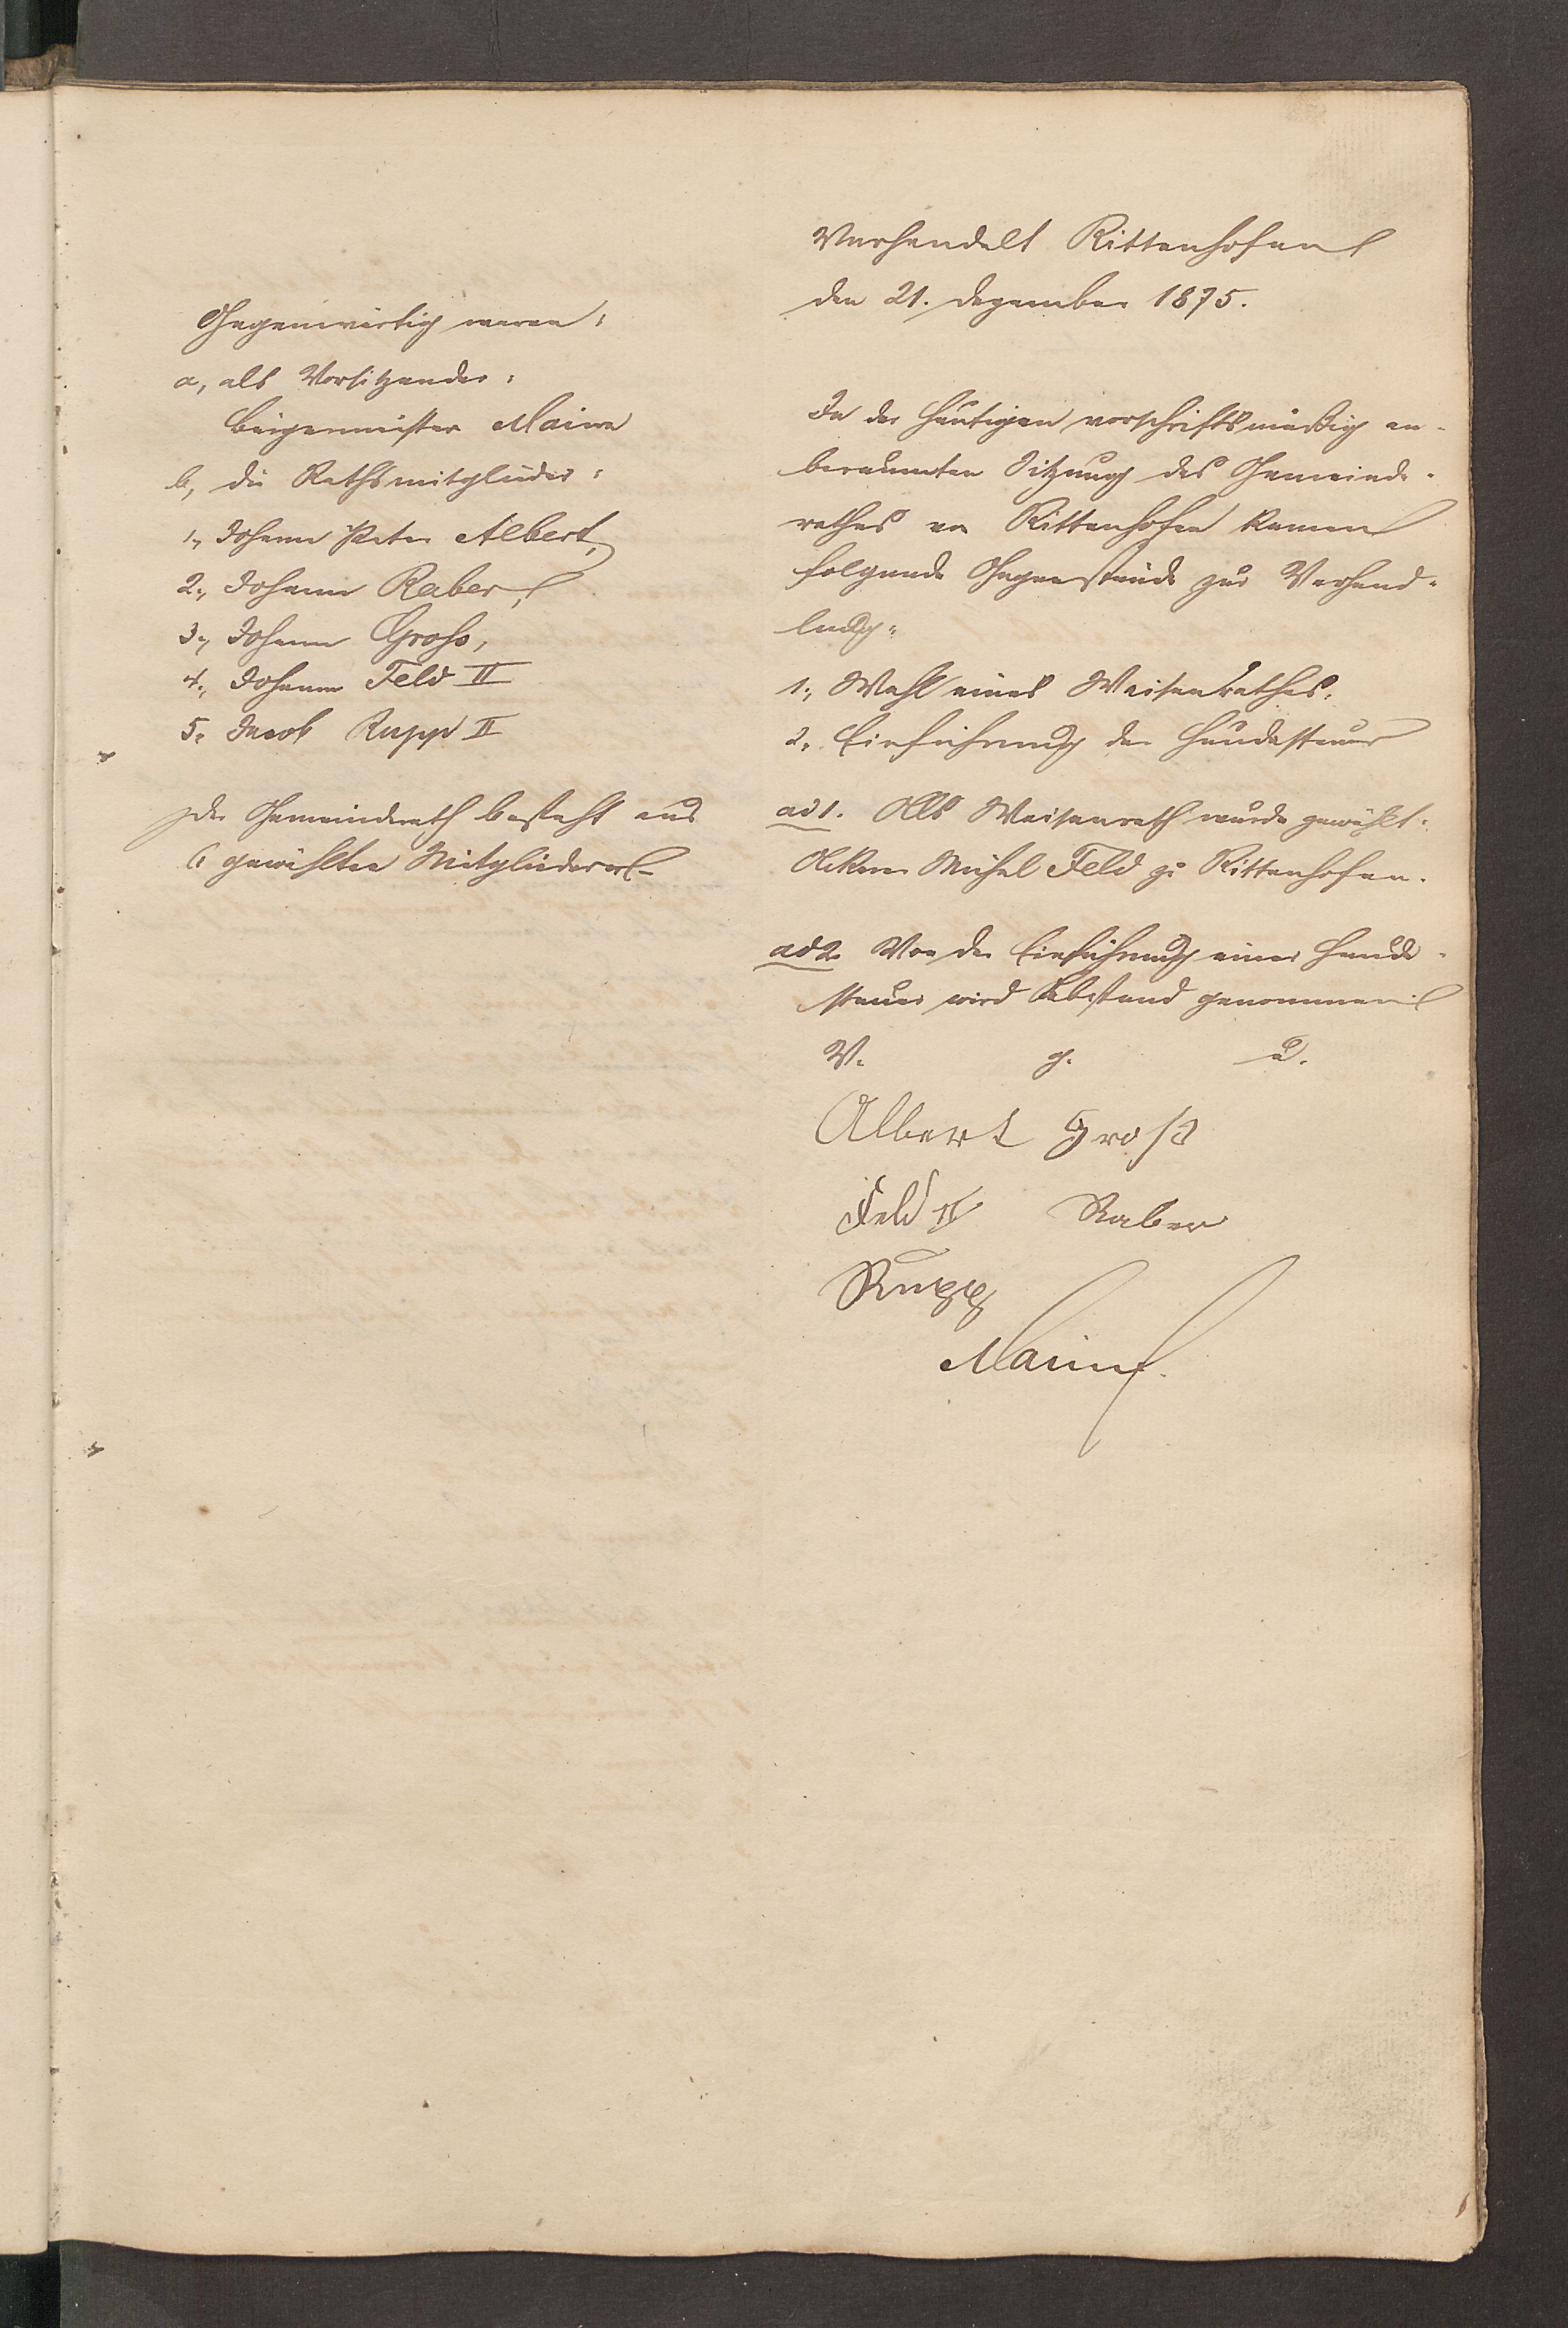 Gegenwärtig waren:
a, als Vorsitzender:
Bürgermeister Maire
b, die Rathsmitglieder:
1., Johann Peter Albert,
2., Johann Raber,
3., Johann Groß,
4., Johann Feld II
5. Jacob Rupp II
Der Gemeinderath besteht aus
6 gewählten Mitgliedern.
Verhandelt Rittenhofen
den 21. Dezember 1875.
In der heutigen vorschriftsmäßig an-
beraumten Sitzung des Gemeinde-
rathes von Rittenhofen kamen
folgende Gegenstände zur Verhand-
lung:
1., Wahl eines Waisenrathes.
2., Einführung der Hundesteuer
ad 1. Als Waisenrath wurde gewählt:
Ackerer Michel Feld zu Rittenhofen.
ad 2. Von der Einführung einer Hunde-
steuer wird Abstand genommen.
V. g. u.
Albert Groß
Feld II Raber
Rupp